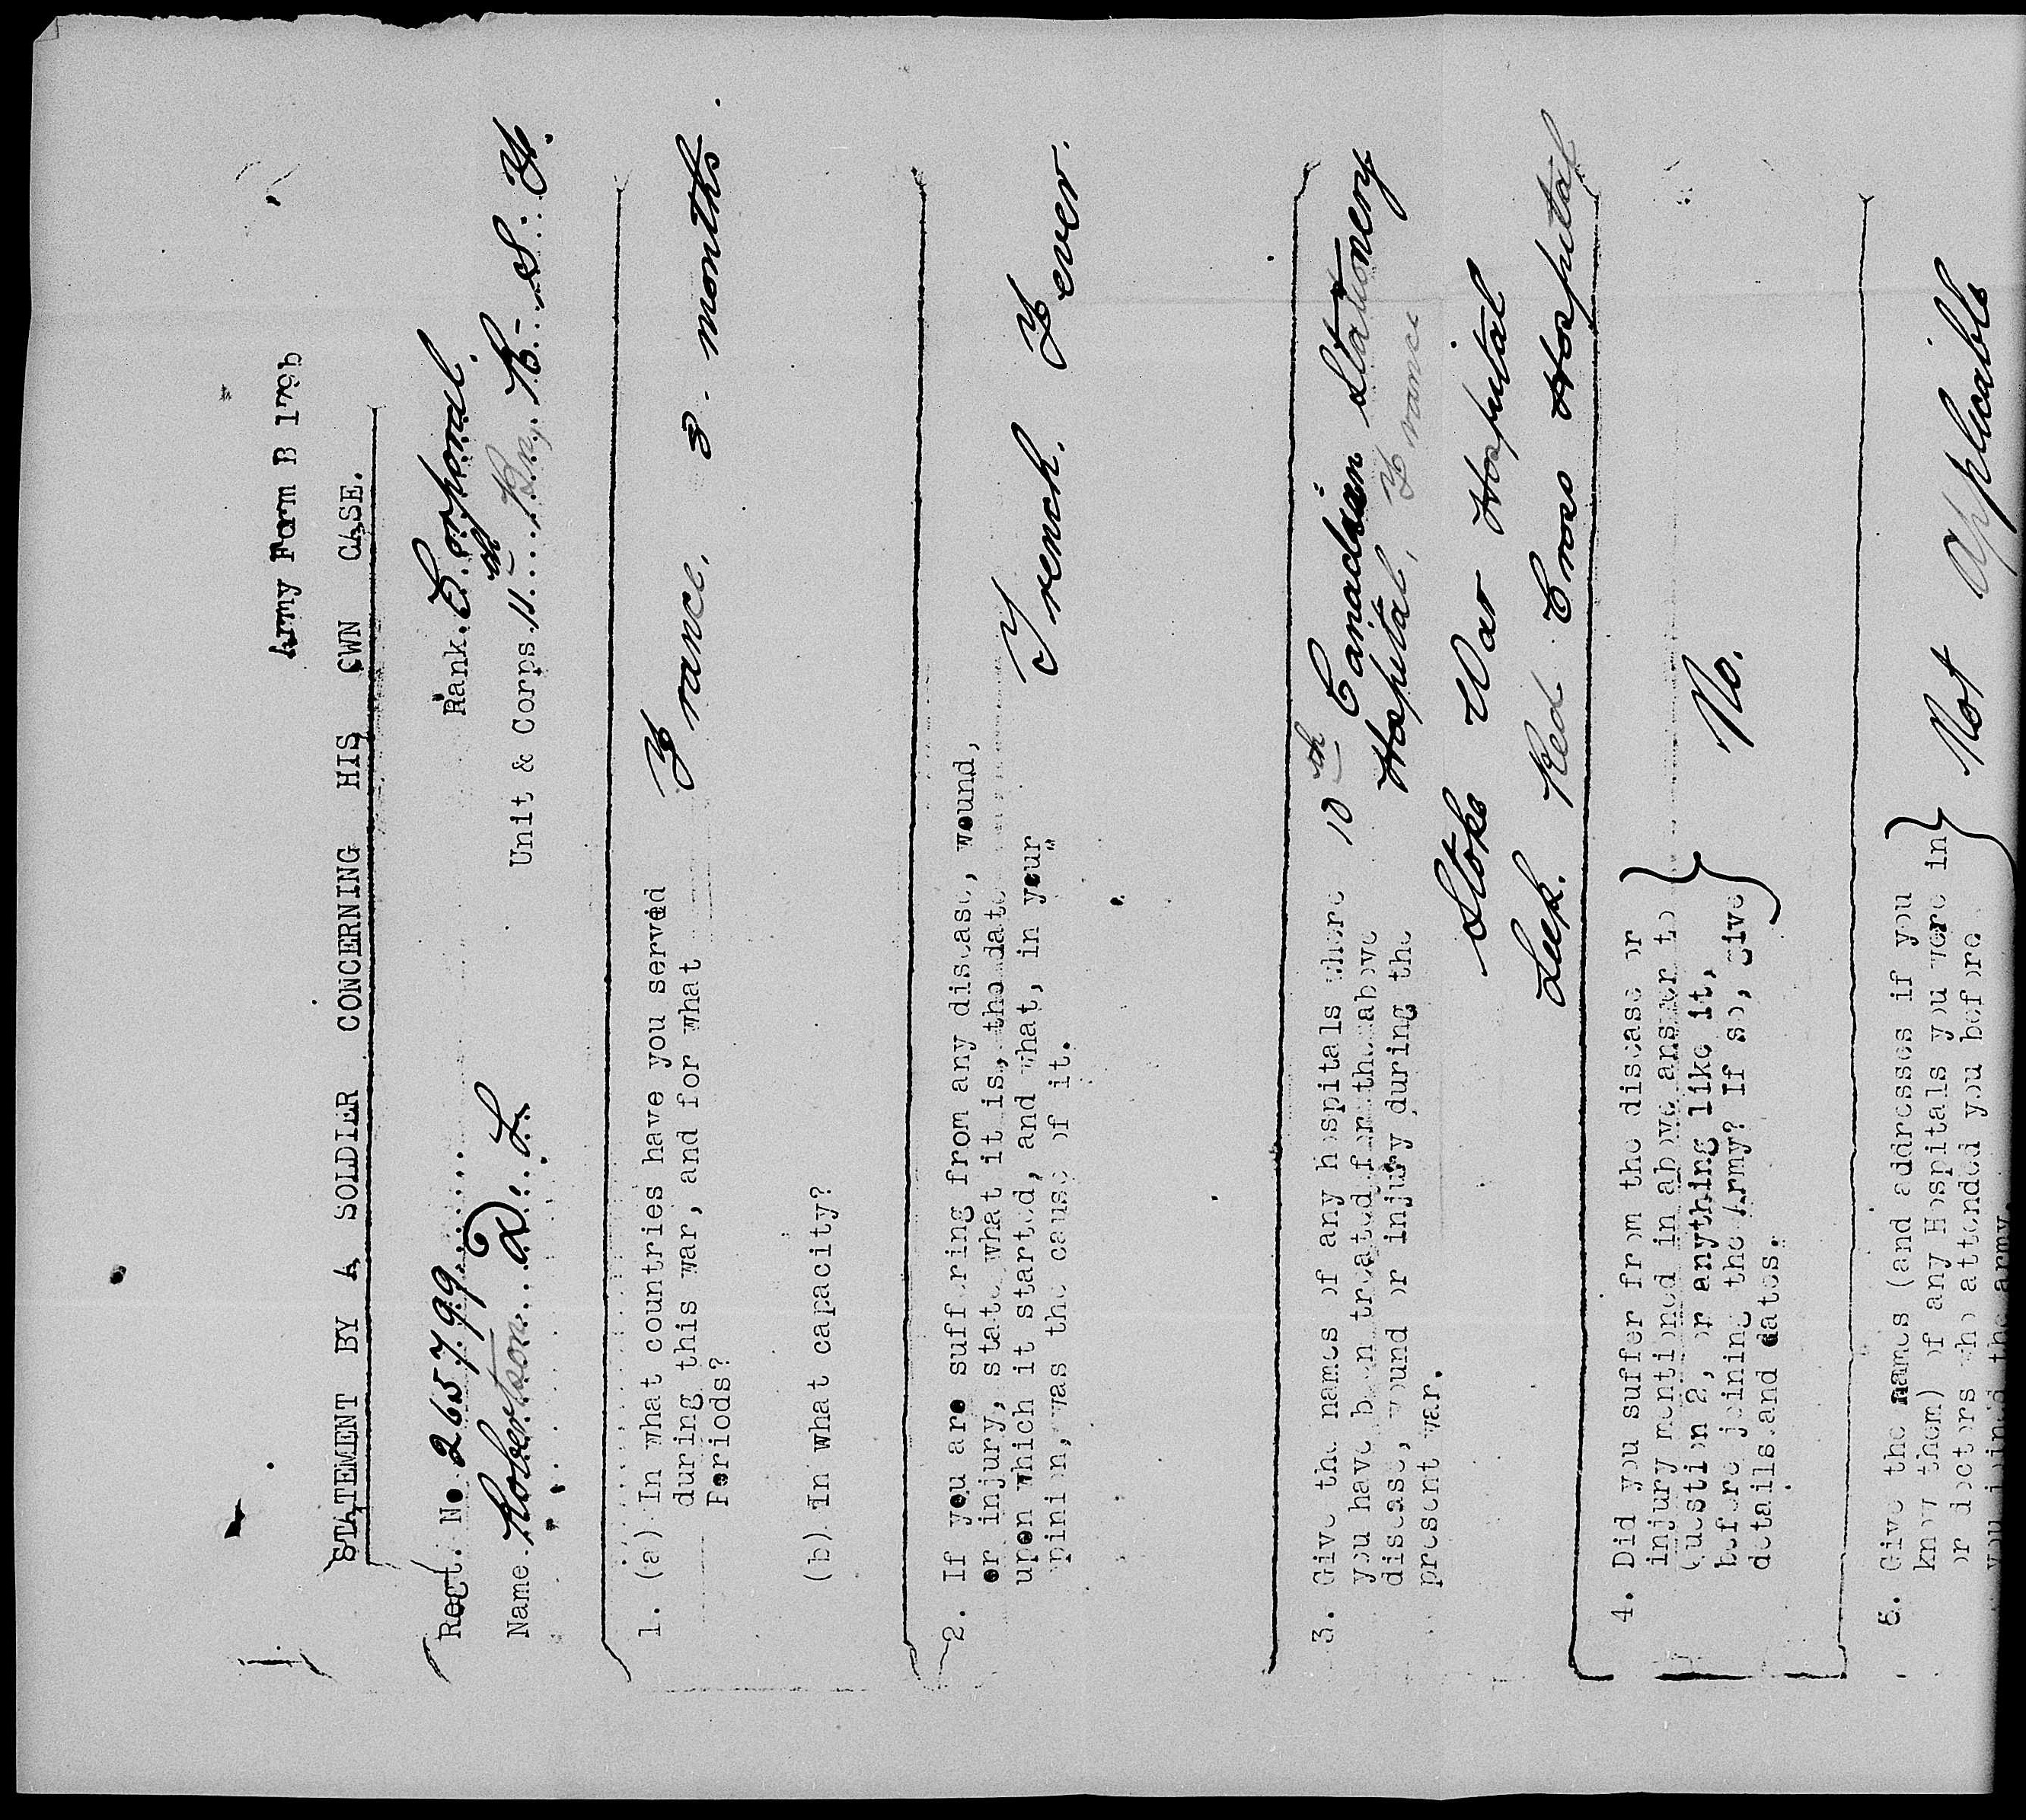 Army Form B 179b
STATEMENT BY A SOLDIER CONCERNING HIS OWN CASE.
Regt. No 265799 Rank. Corporal.
Name. Robertson. D. L. Unit & Corps. 11th
1. (a) In what countries have you served
during this war, and for what
Periods?
France. 3. months.
(b) In what capacity?
2. If you are suffering from any disease, wound,
or injury, state what it is, the date
upon which it started, and what, in your
opinion, was the cause of it.
Trench. Fever.
3. Give the names of any hospitals where
you have been treated for the above
disease, wound or injury during the
present war.
10th Canadian Stationery
Hospital, France
Stoke War Hospital
Leek. Red Cross Hospital
4. Did you suffer from the disease or
injury mentioned in above answer to
Question 2, or anything like it,
before joining the Army? If so, give
details and dates.
No.
5. Give the names (and addresses if you
know them) of any Hospitals you were in
or doctors who attended you before
you joined the army.
Not Applicable